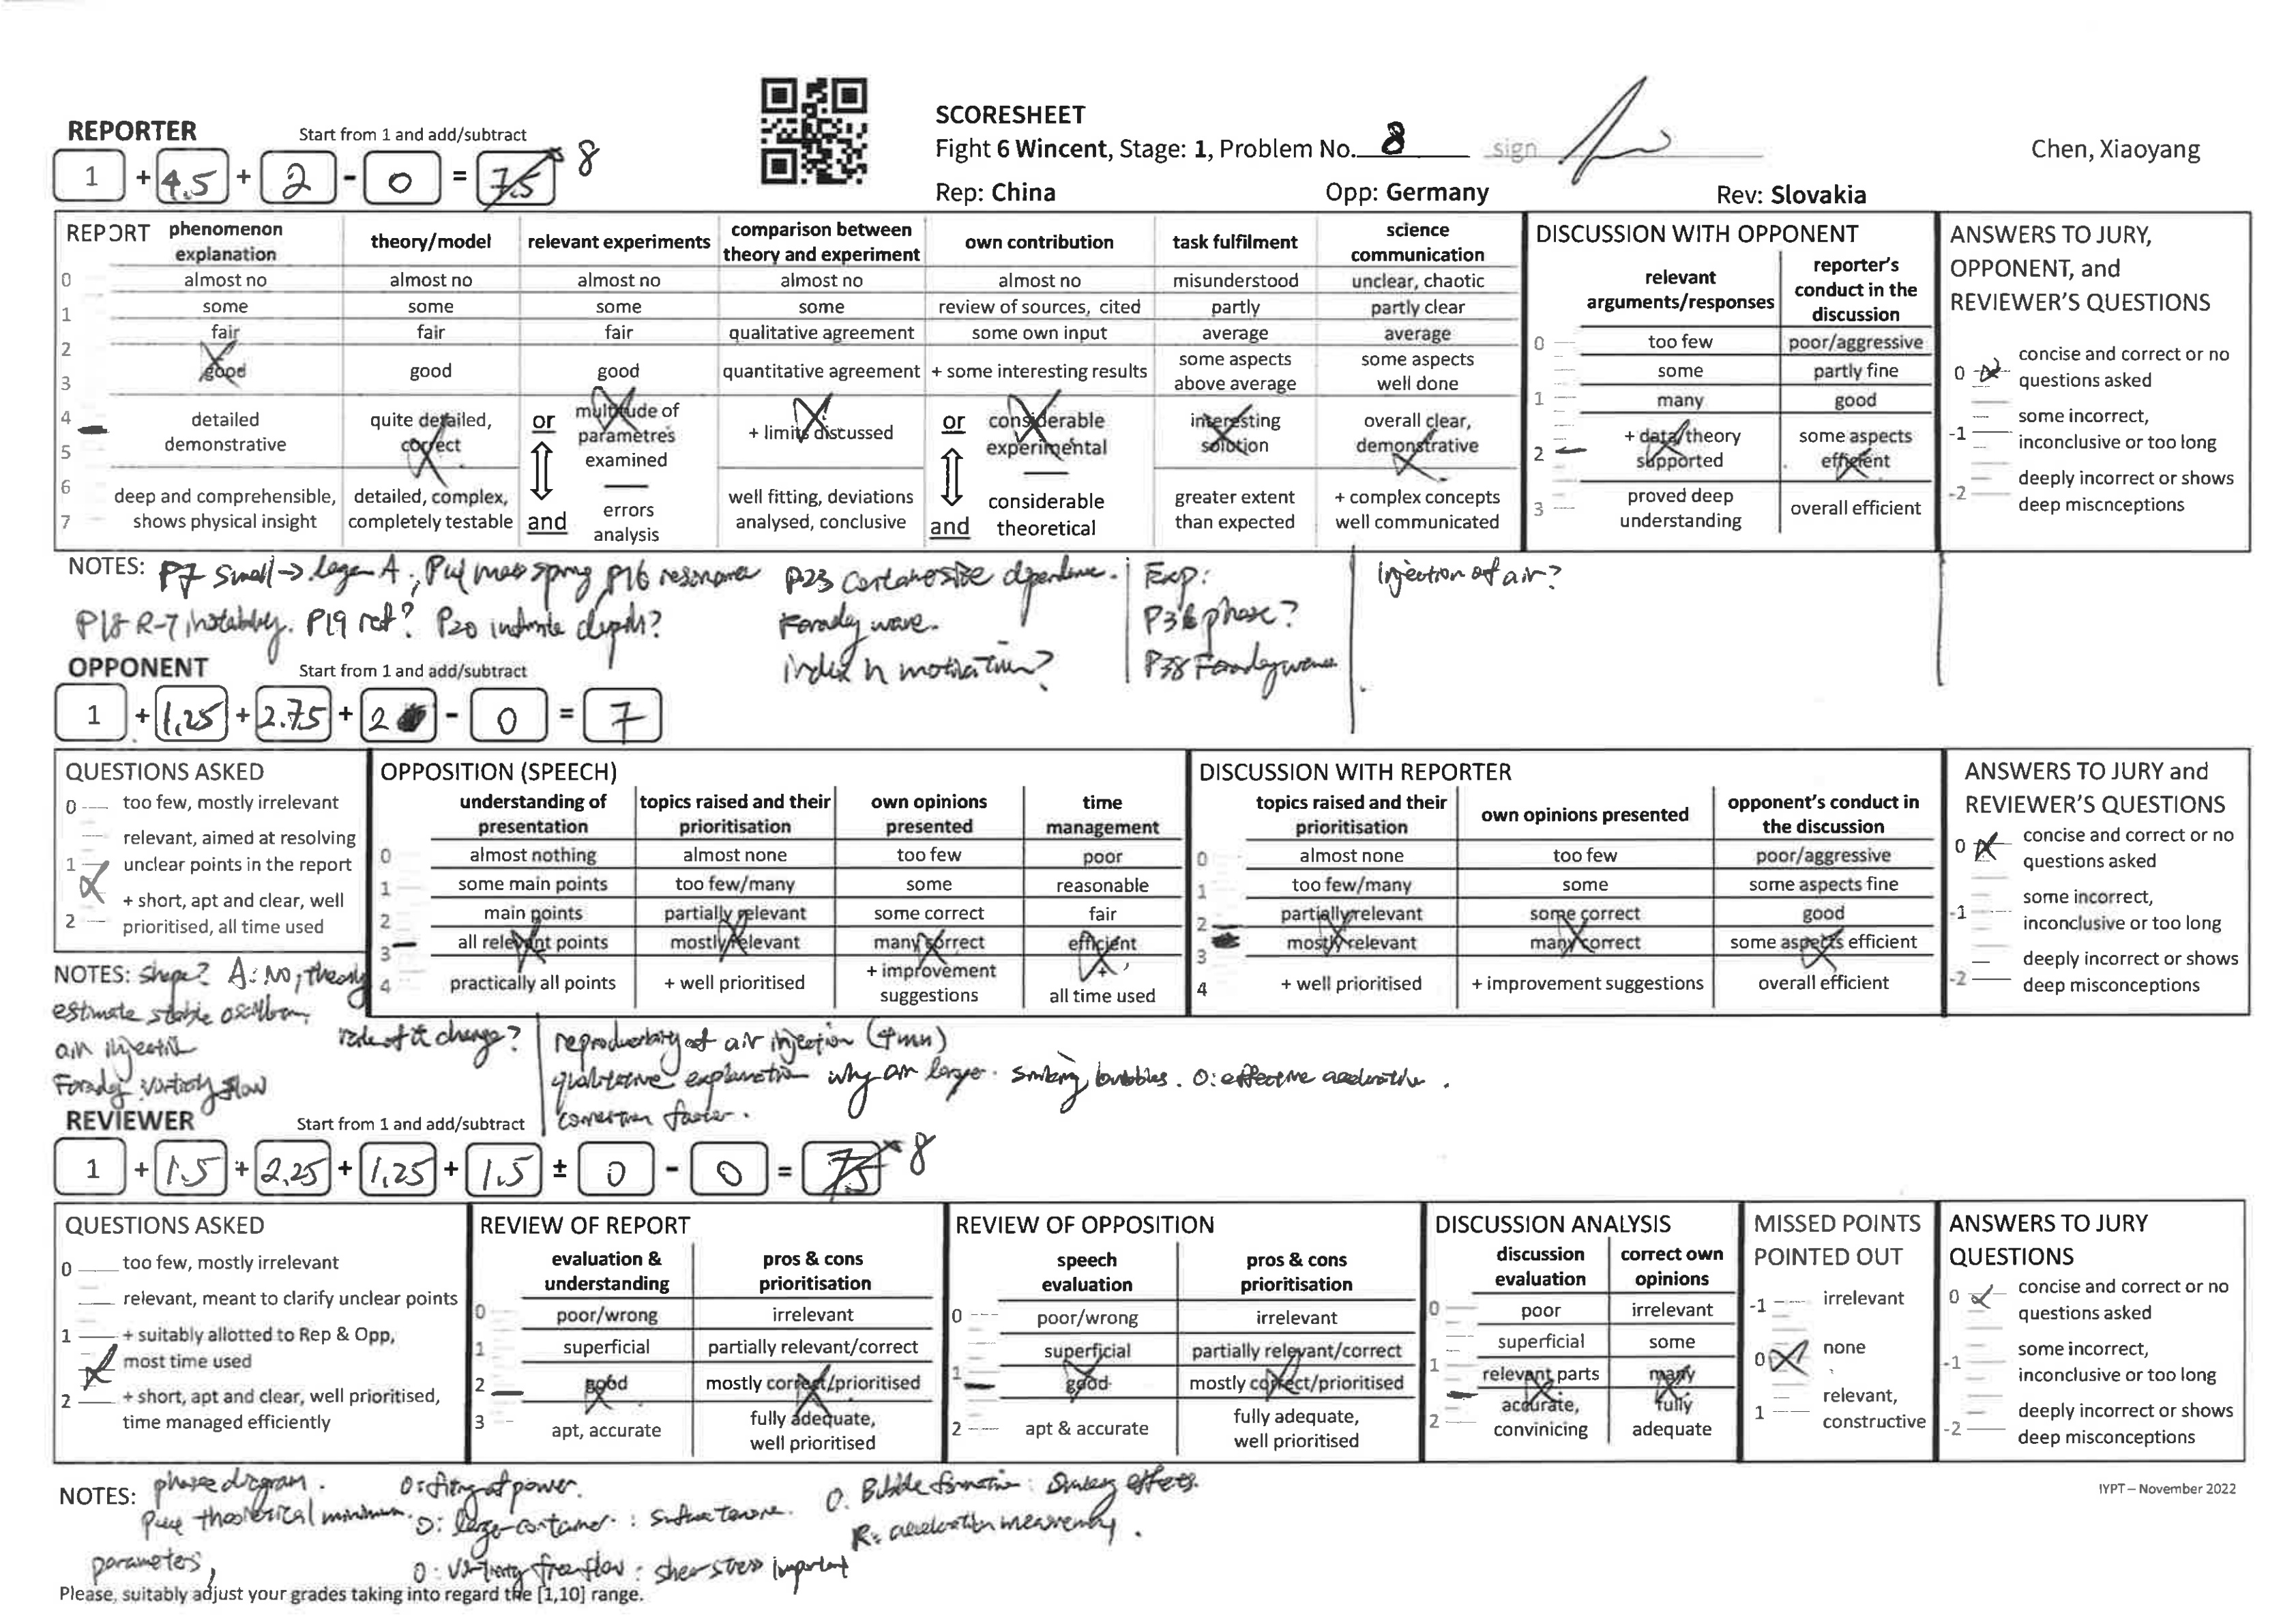 SCORESHEET
REPORTER Start from 1 and add/subtract
Fight 6 Wincent, Stage: 1, Problem No. 8 sign
Chen, Xiaoyang
1 + 4.5 + 2 - 0 = 7.5 8
Rep: China Opp: Germany Rev: Slovakia
REPORT
phenomenon explanation
theory/model
relevant experiments
comparison between theory and experiment
own contribution
task fulfilment
science communication
0 almost no almost no almost no almost no almost no misunderstood unclear, chaotic
1 some some some some review of sources, cited partly partly clear
2 fair fair fair qualitative agreement some own input average average
3 good good good quantitative agreement + some interesting results some aspects above average some aspects well done
4
5
detailed demonstrative
quite detailed, correct
or multitude of parametres examined
+ limits discussed
or considerable experimental
interesting solution
overall clear, demonstrative
6
7
deep and comprehensible, shows physical insight
detailed, complex, completely testable
and errors analysis
well fitting, deviations analysed, conclusive
and considerable theoretical
greater extent than expected
+ complex concepts well communicated
DISCUSSION WITH OPPONENT
relevant arguments/responses
reporter's conduct in the discussion
0 too few poor/aggressive
some partly fine
1 many good
2 + data/theory supported some aspects efficient
3 proved deep understanding overall efficient
ANSWERS TO JURY,
OPPONENT, and
REVIEWER'S QUESTIONS
0 concise and correct or no questions asked
-1 some incorrect, inconclusive or too long
-2 deeply incorrect or shows deep miscnceptions
NOTES: P7 small → larger A, P14 mass spring, P16 resonance P23 container size dependence. Exp: Injection of air?
P18 R-T instability. P19 ref? P20 infinite depth? Faraday wave. P36 phase?
index n motivation? P38 Faraday wave
OPPONENT Start from 1 and add/subtract
1 + 1.25 + 2.75 + 2 - 0 = 7
QUESTIONS ASKED
0 too few, mostly irrelevant
relevant, aimed at resolving
1 unclear points in the report
+ short, apt and clear, well
2 prioritised, all time used
OPPOSITION (SPEECH)
understanding of presentation
topics raised and their prioritisation
own opinions presented
time management
0 almost nothing almost none too few poor
1 some main points too few/many some reasonable
2 main points partially relevant some correct fair
3 all relevant points mostly relevant many correct efficient
4 practically all points + well prioritised + improvement suggestions + all time used
DISCUSSION WITH REPORTER
topics raised and their prioritisation
own opinions presented
opponent's conduct in the discussion
0 almost none too few poor/aggressive
1 too few/many some some aspects fine
2 partially relevant some correct good
3 mostly relevant many correct some aspects efficient
4 + well prioritised + improvement suggestions overall efficient
ANSWERS TO JURY and
REVIEWER'S QUESTIONS
0 concise and correct or no questions asked
-1 some incorrect, inconclusive or too long
-2 deeply incorrect or shows deep misconceptions
NOTES: shape? A: No, theory
estimate stable oscillation,
air injection
Faraday vorticity flow
rate of change?
reproducibility of air injection (4mn)
qualitative explanation why air larger. Sinking bubbles. O: effective acceleration.
correction factor.
REVIEWER Start from 1 and add/subtract
1 + 1.5 + 2.25 + 1.25 + 1.5 ± 0 - 0 = 7.5 8
QUESTIONS ASKED
0 too few, mostly irrelevant
relevant, meant to clarify unclear points
1 + suitably allotted to Rep & Opp,
most time used
2 + short, apt and clear, well prioritised,
time managed efficiently
REVIEW OF REPORT
evaluation & understanding
pros & cons prioritisation
0 poor/wrong irrelevant
1 superficial partially relevant/correct
2 good mostly correct/prioritised
3 apt, accurate fully adequate, well prioritised
REVIEW OF OPPOSITION
speech evaluation
pros & cons prioritisation
0 poor/wrong irrelevant
superficial partially relevant/correct
1 good mostly correct/prioritised
2 apt & accurate fully adequate, well prioritised
DISCUSSION ANALYSIS
discussion evaluation
correct own opinions
0 poor irrelevant
superficial some
1 relevant parts many
2 accurate, convinicing fully adequate
MISSED POINTS
POINTED OUT
-1 irrelevant
0 none
1 relevant, constructive
ANSWERS TO JURY
QUESTIONS
0 concise and correct or no questions asked
-1 some incorrect, inconclusive or too long
-2 deeply incorrect or shows deep misconceptions
NOTES: phase diagram. O: fitting of power. O: Bubble formation: Sinking effects.
theoretical minimum. O: large container: surface tension. R: acceleration measurement.
parameters, O: vorticity free flow: shear stress important
IYPT – November 2022
Please, suitably adjust your grades taking into regard the [1,10] range.